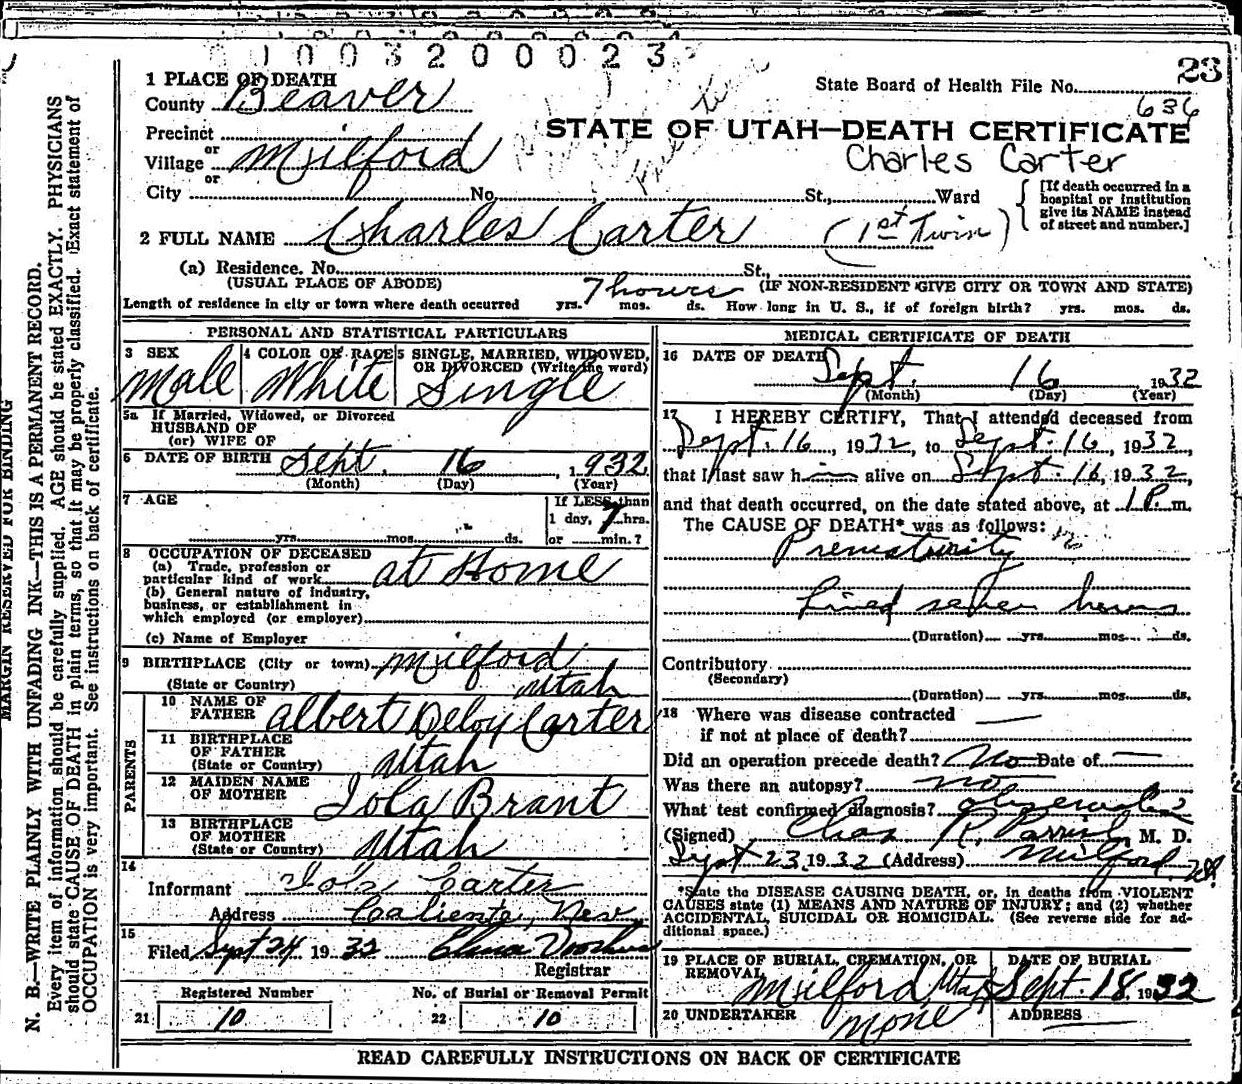 1003200023
23
1 PLACE OF DEATH
State Board of Health File No.
County Beaver
636
Precinct
STATE OF UTAH—DEATH CERTIFICATE
or
Village Milford
Charles Carter
or
City No. St., Ward
[If death occurred in a hospital or institution give its NAME instead of street and number.]
2 FULL NAME Charles Carter (1st Twin)
(a) Residence. No. St.,
(USUAL PLACE OF ABODE) (IF NON-RESIDENT GIVE CITY OR TOWN AND STATE)
7 hours
Length of residence in city or town where death occurred yrs. mos. ds. How long in U. S., if of foreign birth? yrs. mos. ds.
PERSONAL AND STATISTICAL PARTICULARS
3 SEX Male
4 COLOR OR RACE White
5 SINGLE, MARRIED, WIDOWED, OR DIVORCED (Write the word) Single
5a If Married, Widowed, or Divorced
HUSBAND OF
(or) WIFE OF
6 DATE OF BIRTH Sept. 16, 1932
(Month) (Day) (Year)
7 AGE
yrs. mos. ds.
If LESS than
1 day, 7 hrs.
or min.?
8 OCCUPATION OF DECEASED
(a) Trade, profession or
particular kind of work at Home
(b) General nature of industry,
business, or establishment in
which employed (or employer)
(c) Name of Employer
9 BIRTHPLACE (City or town) Milford
(State or Country) Utah
PARENTS
10 NAME OF FATHER Albert Deloy Carter
11 BIRTHPLACE OF FATHER (State or Country) Utah
12 MAIDEN NAME OF MOTHER Iola Brant
13 BIRTHPLACE OF MOTHER (State or Country) Utah
14
Informant Iola Carter
Address Caliente, Nev.
15
Filed Sept 24 1932
Registrar
Registered Number
No. of Burial or Removal Permit
21 10 22 10
MEDICAL CERTIFICATE OF DEATH
16 DATE OF DEATH Sept. 16 1932
(Month) (Day) (Year)
17 I HEREBY CERTIFY, That I attended deceased from
Sept. 16, 1932, to Sept. 16, 1932,
that I last saw him alive on Sept. 16, 1932,
and that death occurred, on the date stated above, at 1 P. m.
The CAUSE OF DEATH* was as follows:
Prematurity
Lived seven hours
(Duration) yrs. mos. ds.
Contributory
(Secondary)
(Duration) yrs. mos. ds.
18 Where was disease contracted
if not at place of death?
Did an operation precede death? No Date of —
Was there an autopsy? no
What test confirmed diagnosis? observation
(Signed) Chas R. Parrish M. D.
Sept 23, 1932 (Address) Milford, Ut.
*State the DISEASE CAUSING DEATH, or, in deaths from VIOLENT
CAUSES state (1) MEANS AND NATURE OF INJURY; and (2) whether
ACCIDENTAL, SUICIDAL OR HOMICIDAL. (See reverse side for ad-
ditional space.)
19 PLACE OF BURIAL, CREMATION, OR REMOVAL Milford Utah
DATE OF BURIAL Sept. 18 1932
20 UNDERTAKER None
ADDRESS
READ CAREFULLY INSTRUCTIONS ON BACK OF CERTIFICATE
MARGIN RESERVED FOR BINDING
N. B.—WRITE PLAINLY WITH UNFADING INK—THIS IS A PERMANENT RECORD.
Every item of information should be carefully supplied. AGE should be stated EXACTLY. PHYSICIANS
should state CAUSE OF DEATH in plain terms, so that it may be properly classified. Exact statement of
OCCUPATION is very important. See instructions on back of certificate.